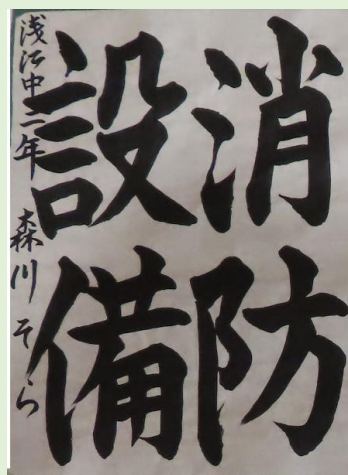 消防
設備
浅江中二年 森川そら